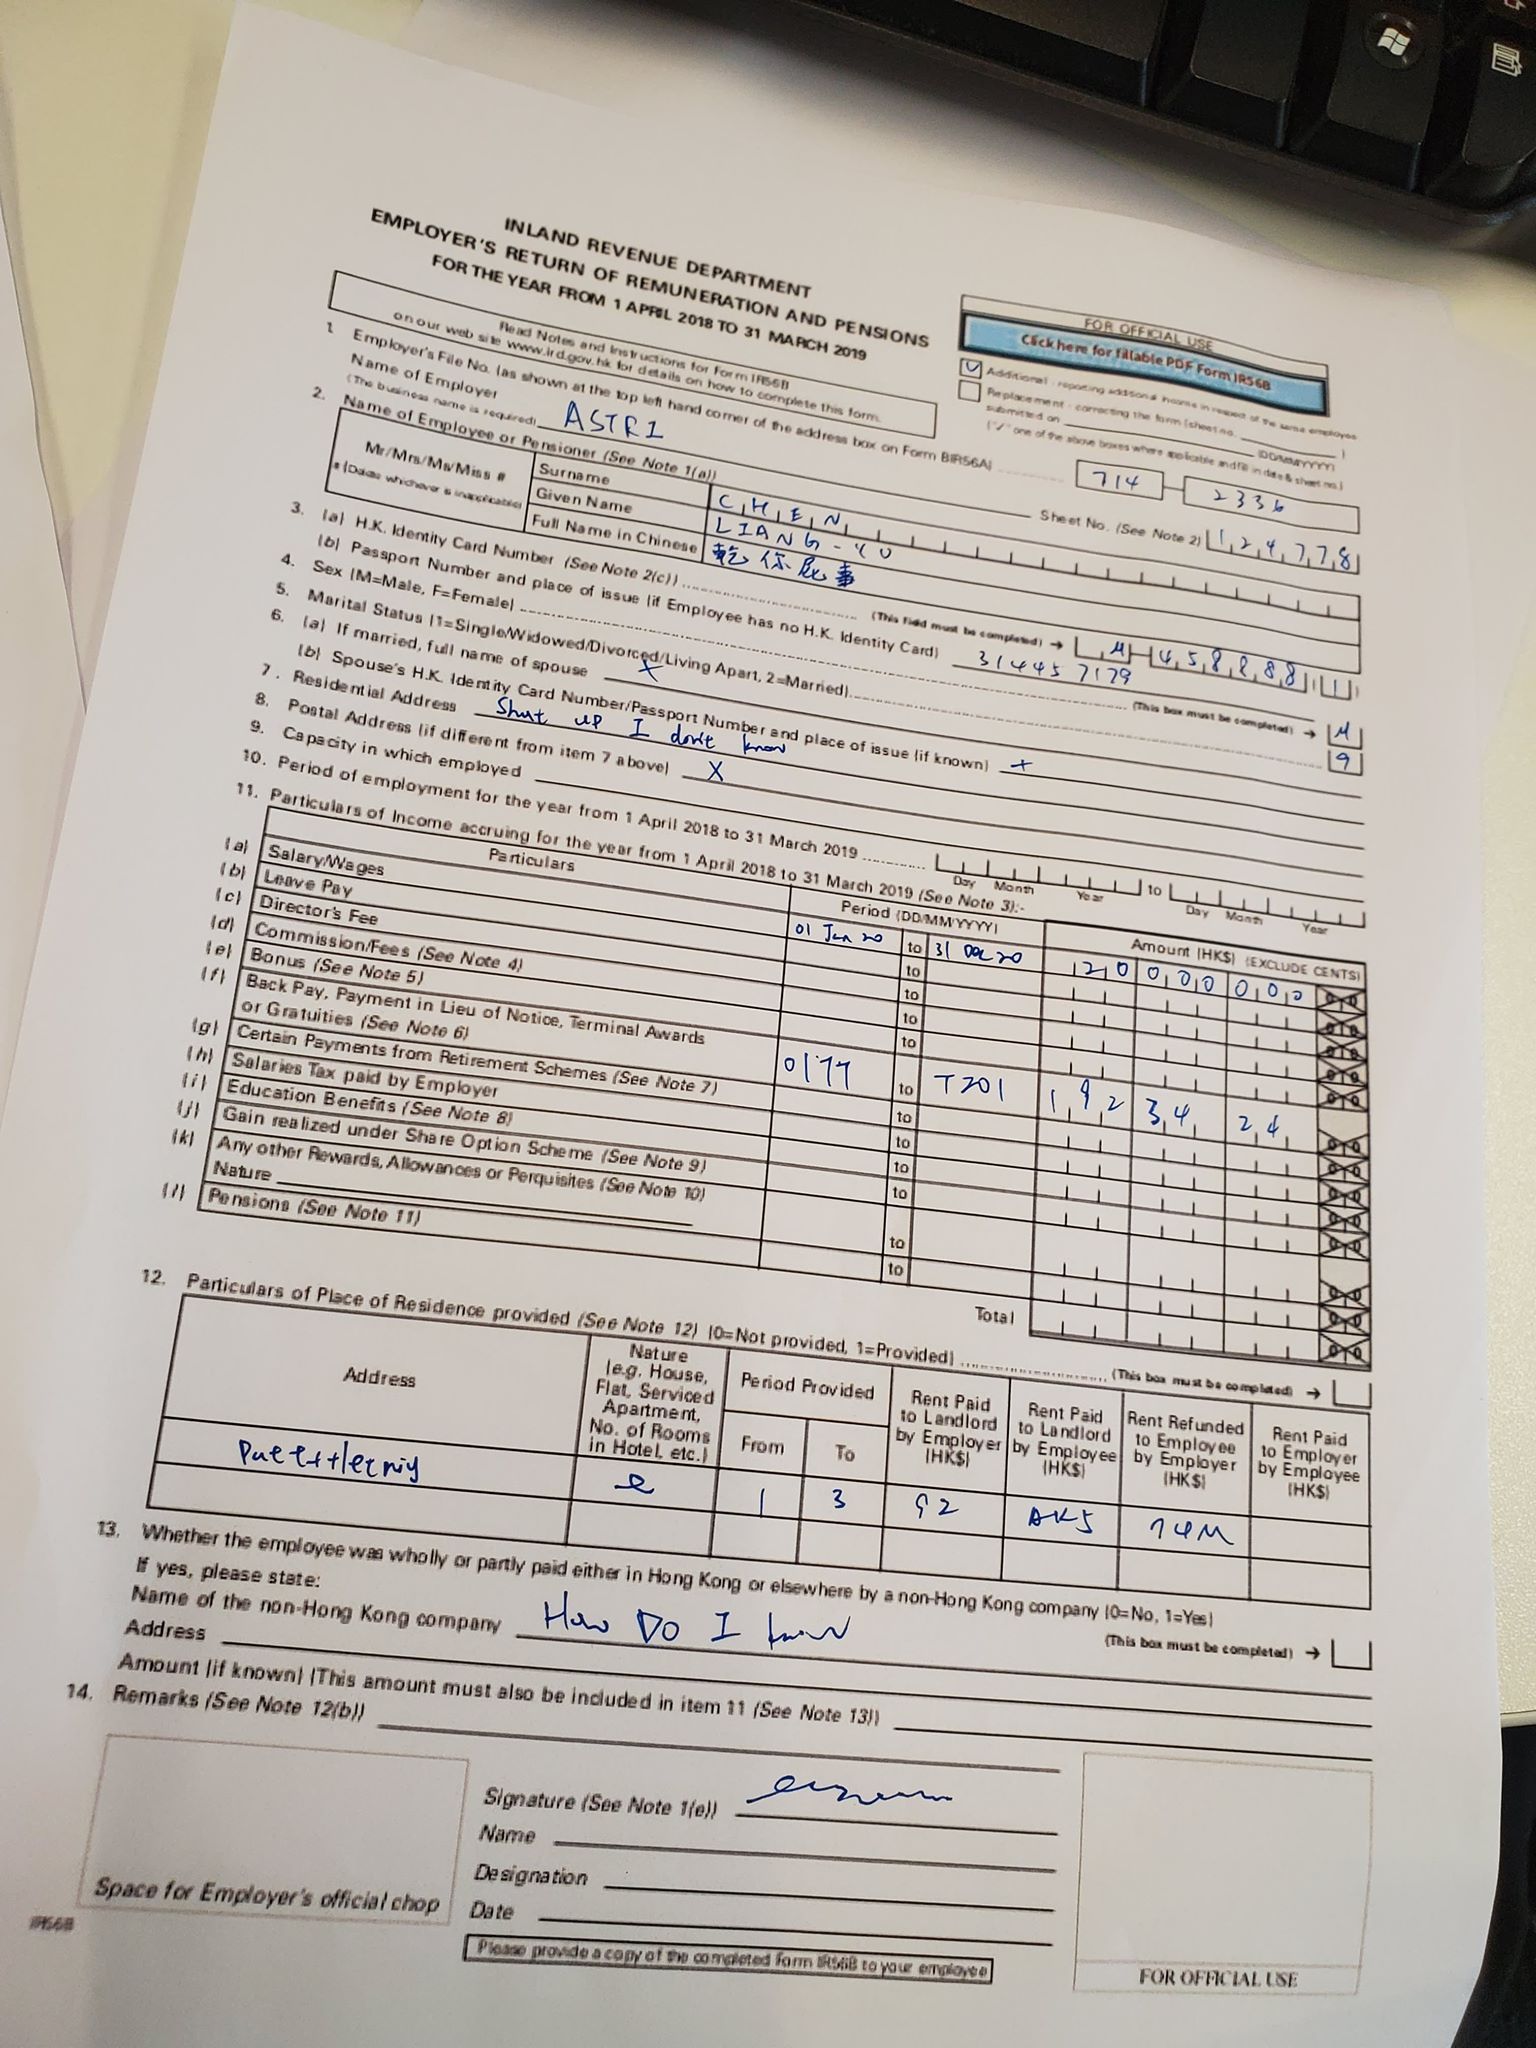 INLAND REVENUE DEPARTMENT
EMPLOYER'S RETURN OF REMUNERATION AND PENSIONS
FOR THE YEAR FROM 1 APRIL 2018 TO 31 MARCH 2019
FOR OFFICIAL USE
Click here for fillable PDF Form IR56B
Read Notes and Instructions for Form IR56B
on our web site www.ird.gov.hk for details on how to complete this form.
Additional - reporting additional income in respect of the same employee
Replacement - correcting the form (sheet no. )
submitted on (DD/MM/YYYY)
("✓" one of the above boxes where applicable and fill in date & sheet no.)
1. Employer's File No. (as shown at the top left hand corner of the address box on Form BIR56A) 714 - 2336
Name of Employer
(The business name is required) ASTRI
Sheet No. (See Note 2) 124778
2. Name of Employee or Pensioner (See Note 1(a))
Mr/Mrs/Ms/Miss #
# (Delete whichever is inapplicable)
Surname CHEN
Given Name LIANG-YU
Full Name in Chinese 乾你屁事
3. (a) H.K. Identity Card Number (See Note 2(c)) (This field must be completed) → M 458888 (1)
(b) Passport Number and place of issue (if Employee has no H.K. Identity Card) 314457179
4. Sex (M=Male, F=Female) (This box must be completed) → M
5. Marital Status (1=Single/Widowed/Divorced/Living Apart, 2=Married) 9
6. (a) If married, full name of spouse X
(b) Spouse's H.K. Identity Card Number/Passport Number and place of issue (if known) X
7. Residential Address Shut up I don't know
8. Postal Address (if different from item 7 above) X
9. Capacity in which employed
10. Period of employment for the year from 1 April 2018 to 31 March 2019 to
Day Month Year Day Month Year
11. Particulars of Income accruing for the year from 1 April 2018 to 31 March 2019 (See Note 3):-
Particulars Period (DD/MM/YYYY) Amount (HK$) (EXCLUDE CENTS)
(a) Salary/Wages 01 Jan 20 to 31 Dec 20 120 000 000
(b) Leave Pay to
(c) Director's Fee to
(d) Commission/Fees (See Note 4) to
(e) Bonus (See Note 5) to
(f) Back Pay, Payment in Lieu of Notice, Terminal Awards
or Gratuities (See Note 6) 0177 to T201 192 34 24
(g) Certain Payments from Retirement Schemes (See Note 7) to
(h) Salaries Tax paid by Employer to
(i) Education Benefits (See Note 8) to
(j) Gain realized under Share Option Scheme (See Note 9) to
(k) Any other Rewards, Allowances or Perquisites (See Note 10)
Nature to
(l) Pensions (See Note 11) to
Total
12. Particulars of Place of Residence provided (See Note 12) (0=Not provided, 1=Provided) (This box must be completed) →
Address
Nature
(e.g. House,
Flat, Serviced
Apartment,
No. of Rooms
in Hotel, etc.)
Period Provided
From To
Rent Paid
to Landlord
by Employer
(HK$)
Rent Paid
to Landlord
by Employee
(HK$)
Rent Refunded
to Employee
by Employer
(HK$)
Rent Paid
to Employer
by Employee
(HK$)
e 1 3 92 AK5 74M
13. Whether the employee was wholly or partly paid either in Hong Kong or elsewhere by a non-Hong Kong company (0=No, 1=Yes)
If yes, please state: (This box must be completed) →
Name of the non-Hong Kong company How Do I know
Address
Amount (if known) (This amount must also be included in item 11 (See Note 13))
14. Remarks (See Note 12(b))
Signature (See Note 1(e))
Name
Designation
Date
Space for Employer's official chop
IR56B
Please provide a copy of the completed Form IR56B to your employee
FOR OFFICIAL USE